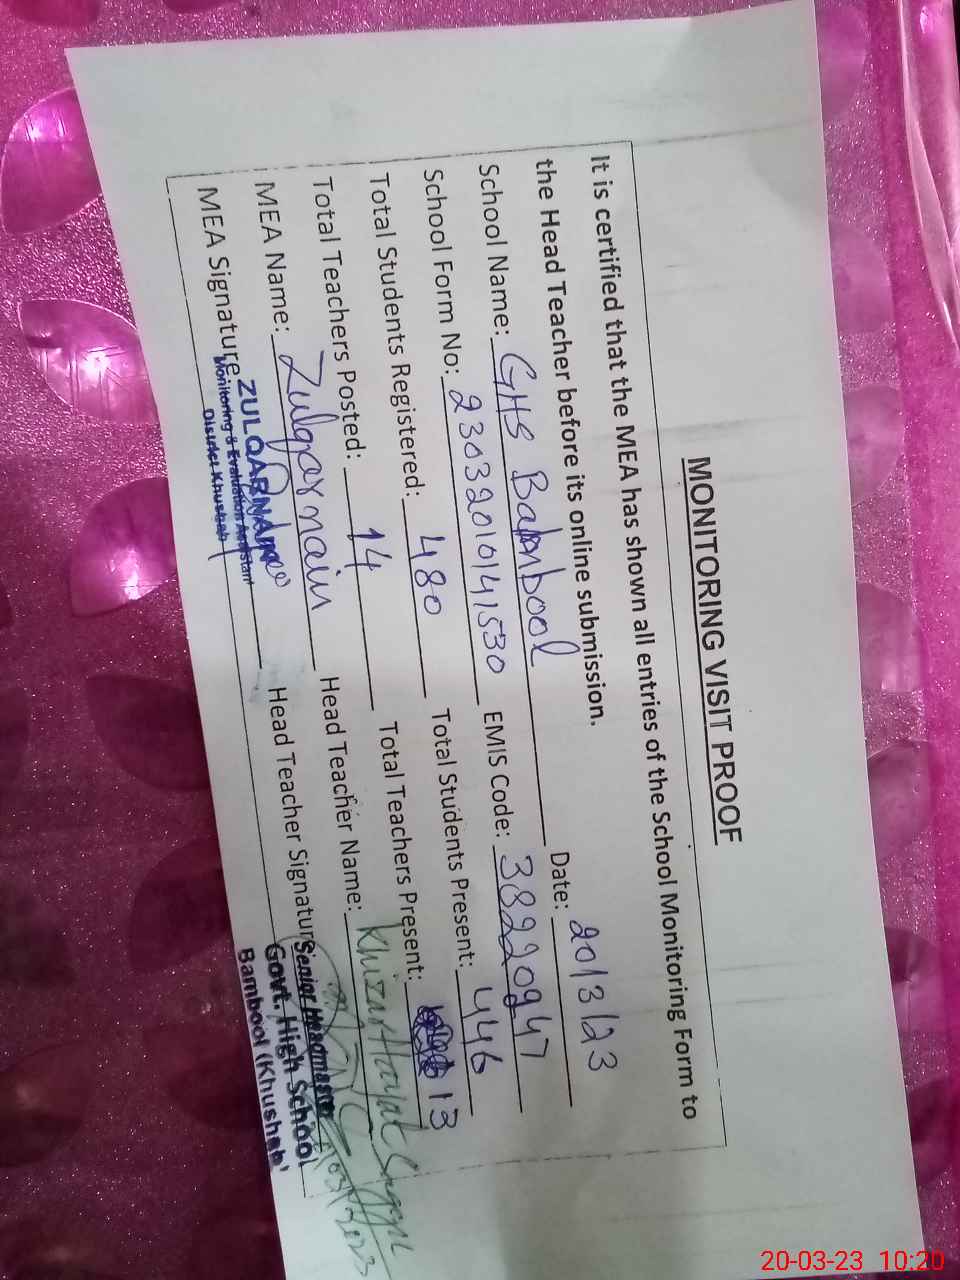 MONITORING VISIT PROOF
It is certified that the MEA has shown all entries of the School Monitoring Form to
the Head Teacher before its online submission.
School Name: GHS Bambool Date: 20/3/23
School Form No: 23032010141530 EMIS Code: 38220947
Total Students Registered: 480 Total Students Present: 446
Total Teachers Posted: 14 Total Teachers Present: 13
MEA Name: Zulqarnain Head Teacher Name: Khizar Hayat
MEA Signature Head Teacher Signature
ZULQARNAIN
Monitoring & Evaluation Assistant
District Khushab
Senior Headmaster
Govt. High School
Bambool (Khushab)
20-03-23 10:20